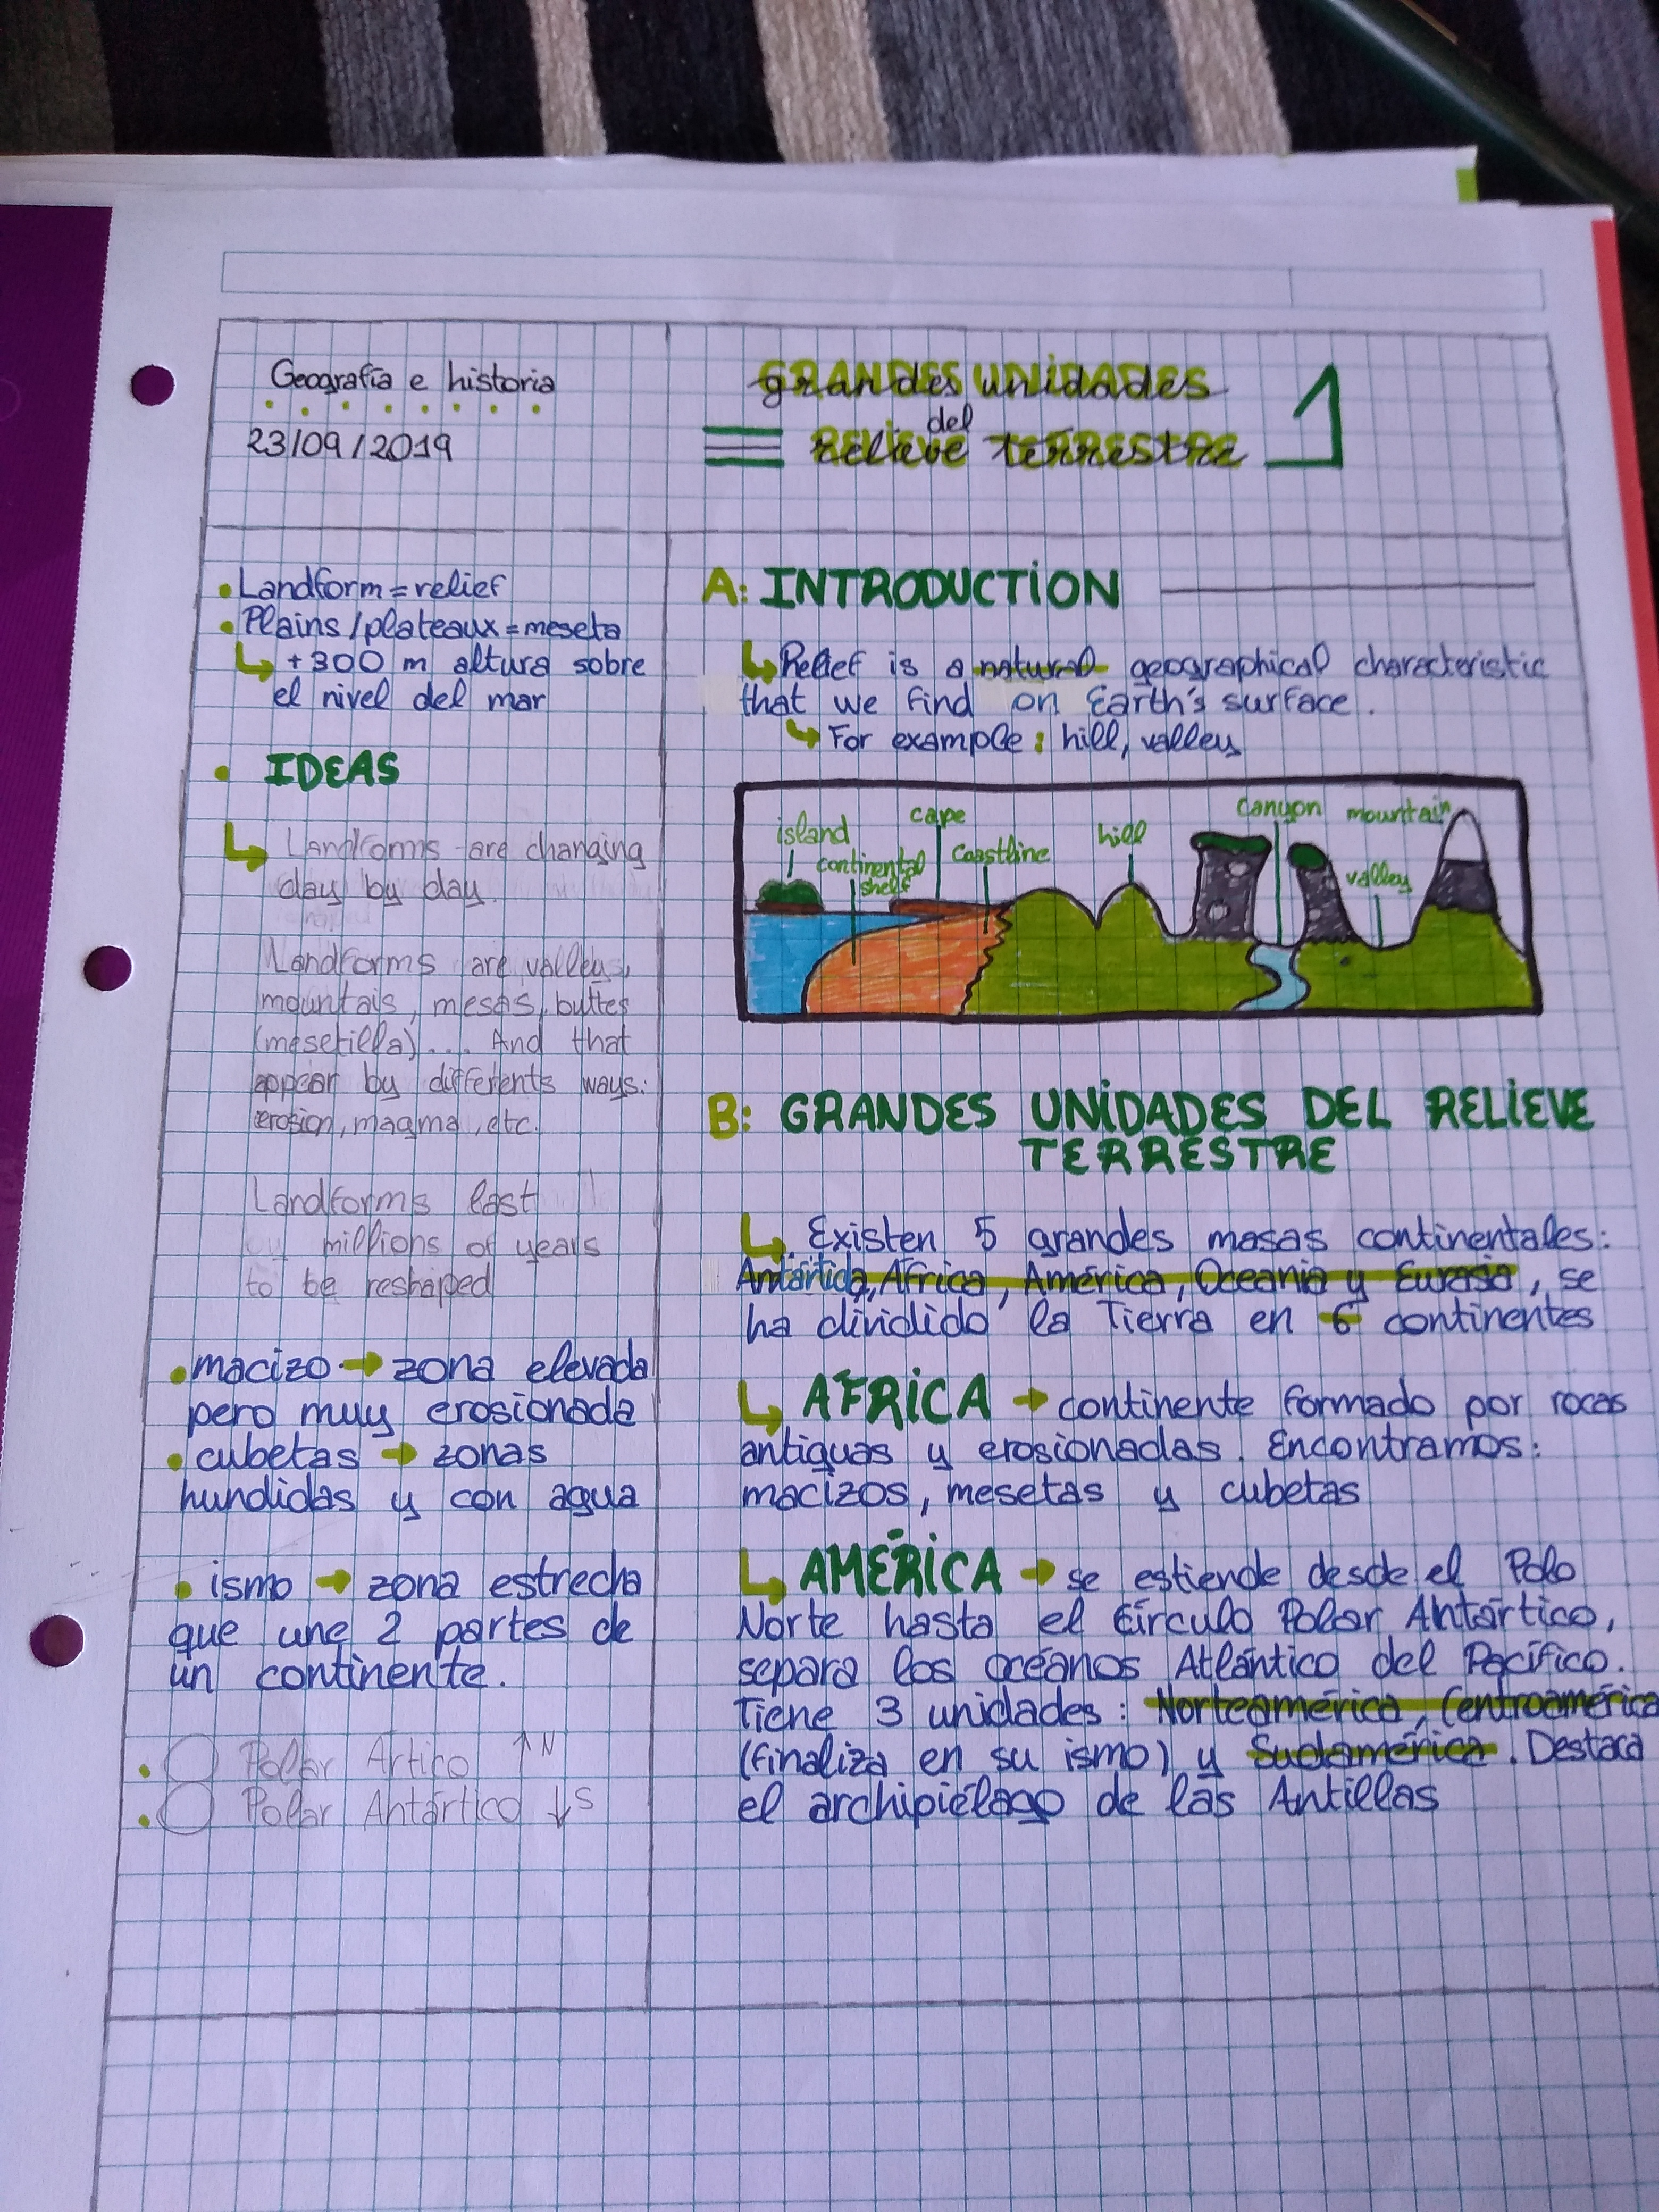 Geografía e historia
23/09/2019
grandes unidades
del
relieve terrestre
1
• Landform = relief
• Plains/plateaux = meseta
+300 m altura sobre
el nivel del mar
• IDEAS
Landforms are changing
day by day.
Landforms are valleys,
mountais, mesas, buttes
(mesetilla).... And that
appear by differents ways:
erosion, magma, etc.
Landforms last
millions of years
to be reshaped
• macizo → zona elevada
pero muy erosionada
• cubetas → zonas
hundidas y con agua
• ismo → zona estrecha
que une 2 partes de
un continente.
• Polar Ártico ↑N
• Polar Antártico ↓S
A: INTRODUCTION
Relief is a natural geographical characteristic
that we find on Earth's surface.
For example: hill, valley
island
cape
continental
shelf
Coastline
hill
Canyon
mountain
valley
B: GRANDES UNIDADES DEL RELIEVE
TERRESTRE
Existen 5 grandes masas continentales:
Antártida, África, América, Oceania y Eurasia, se
ha dividido la Tierra en 6 continentes
AFRICA → continente formado por rocas
antiguas y erosionadas. Encontramos:
macizos, mesetas y cubetas
AMÉRICA → se estiende desde el Polo
Norte hasta el Círculo Polar Antártico,
separa los océanos Atlántico del Pacífico.
Tiene 3 unidades: Norteamérica, Centroamérica
(finaliza en su ismo) y Sudamérica. Destaca
el archipiélago de las Antillas